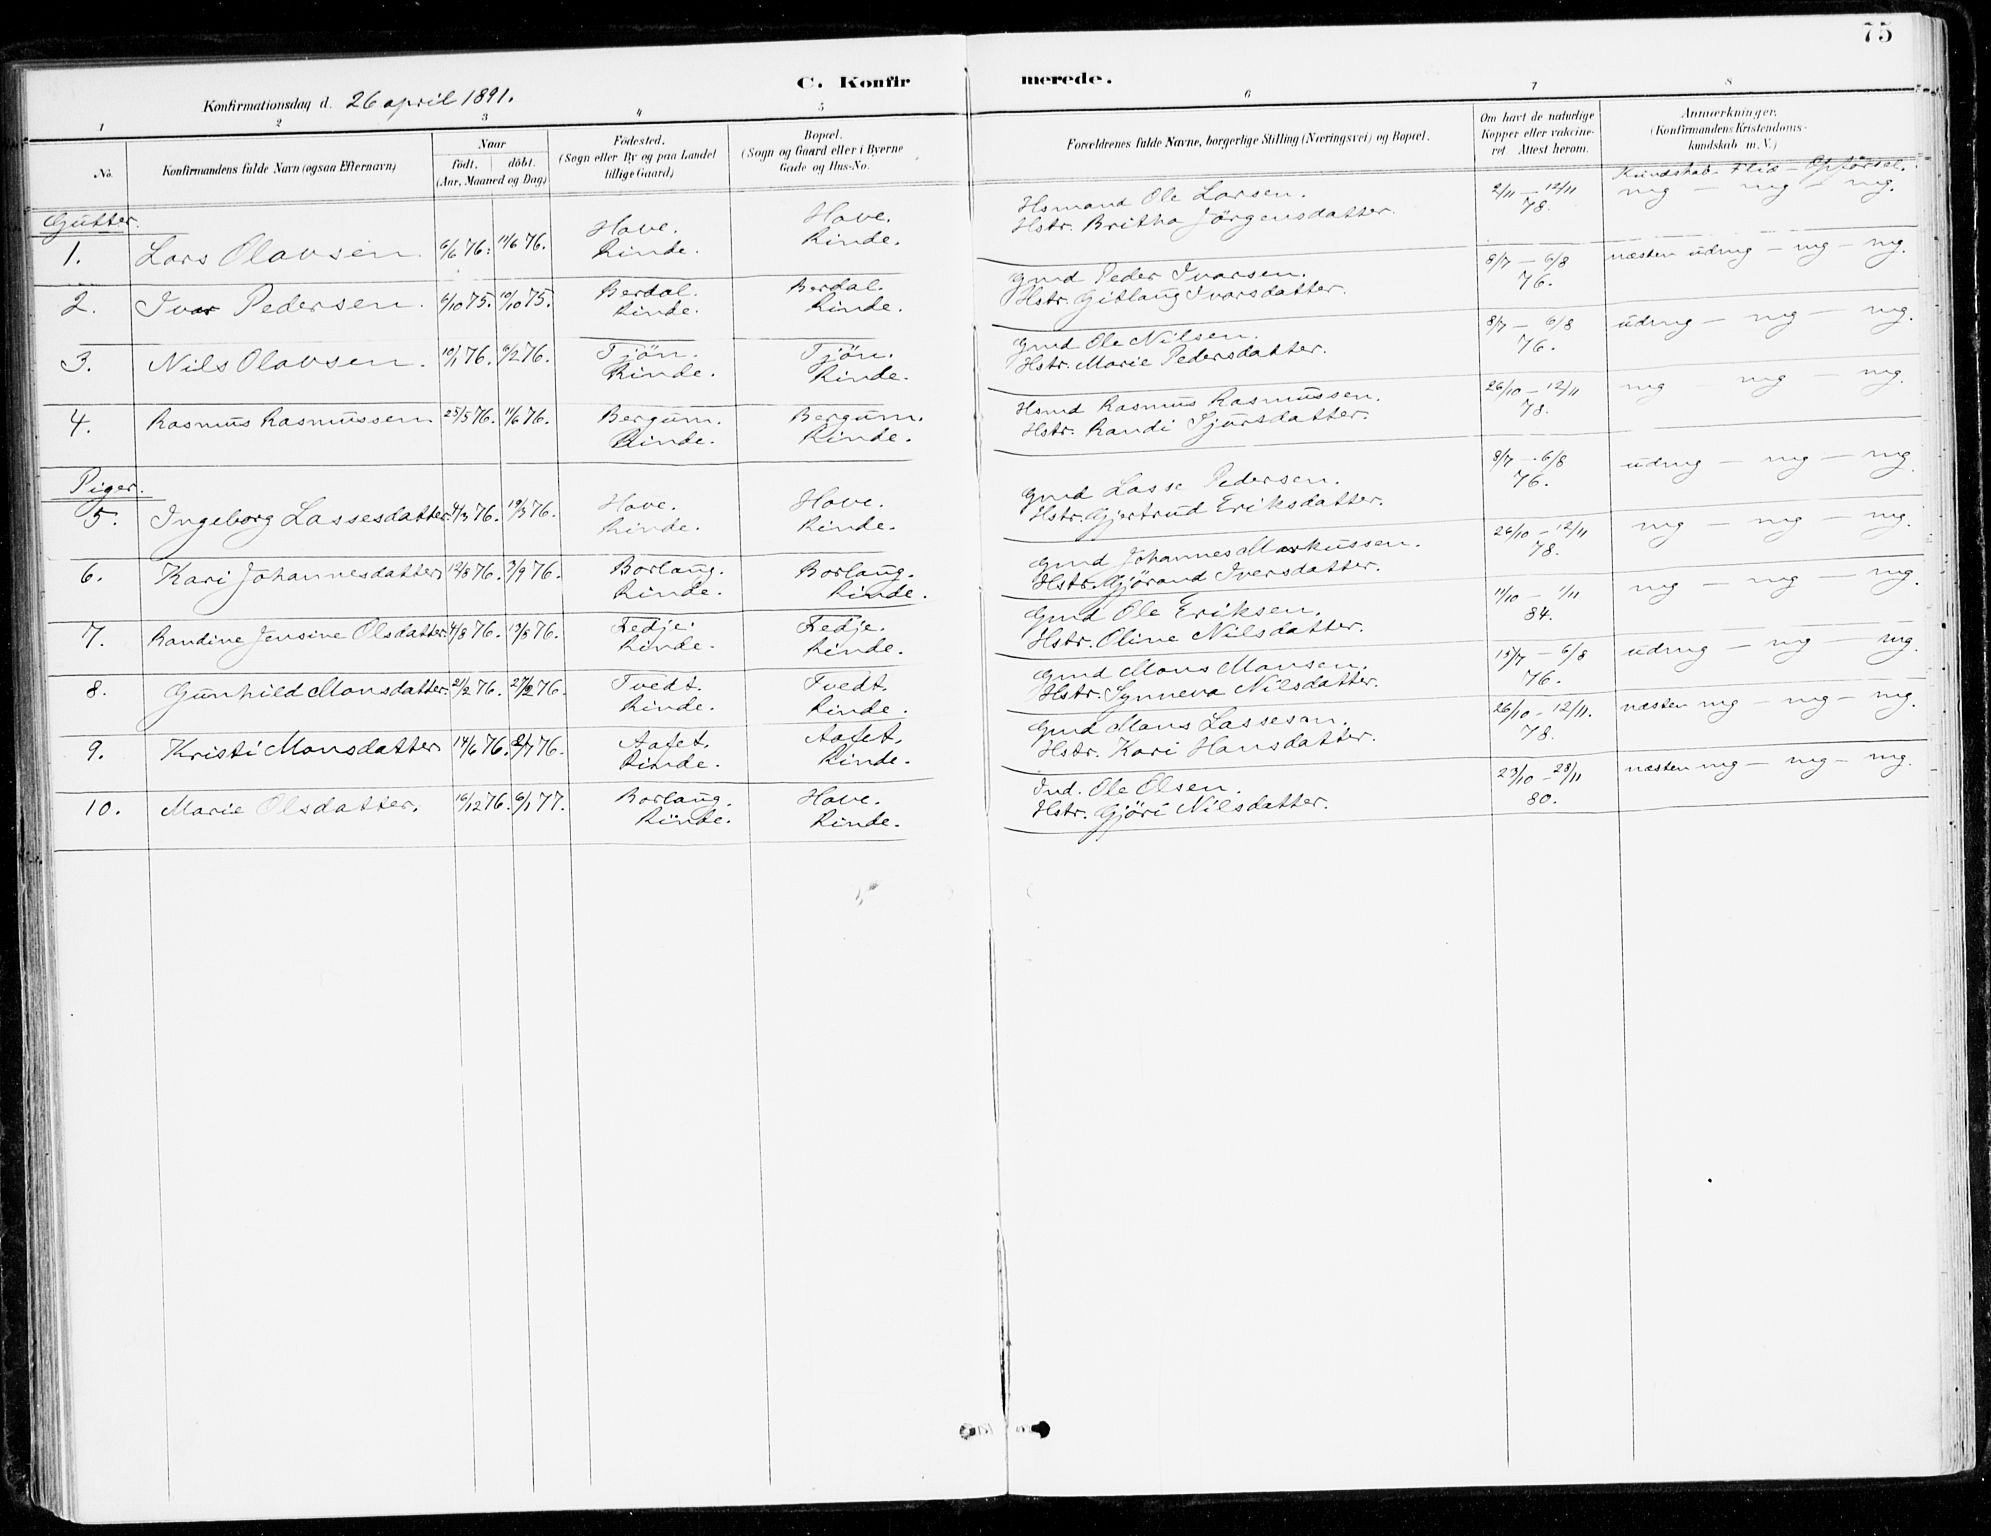 75
C. Konfirmerede.
Konfirmationsdag d. 26 april 1891.
1 2 3 4 5 6 7 8
No. Konfirmandens fulde Navn (ogsaa Efternavn) Naar født. døbt. (Aar, Maaned og Dag) Fødested. (Sogn eller By og paa Landet tillige Gaard) Bopæl. (Sogn og Gaard eller i Byerne Gade og Hus-No. Forældrenes fulde Navne, borgerlige Stilling (Næringsvei) og Bopæl. Om havt de naturlige Kopper eller vakcineret. Attest herom. Anmærkninger. (Konfirmandens Kristendomskundskab m. V.)
Kundskab - Flid - Opførsel.
Gutter.
1. Lars Olavsen. 6/6 76. 11/6 76. Hove. Rinde. Hove. Rinde. Hsmand Ole Larsen. Hstr. Britha Jörgensdatter. 2/11 — 12/11 78. mg — mg — mg.
2. Ivar Pedersen. 6/10 75. 10/10 75. Berdal. Rinde. Berdal. Rinde. Gmd Peder Ivarsen. Hstr. Gitlaug Ivarsdatter. 8/7 — 6/8 76. næsten udmg — mg — mg.
3. Nils Olavsen. 10/1 76. 6/2 76. Tjön. Rinde. Tjön. Rinde. Gmd Ole Nilsen. Hstr. Marie Pedersdatter. 8/7 — 6/8 76. udmg — mg — mg.
4. Rasmus Rasmussen 25/5 76. 11/6 76. Bergum. Rinde. Bergum. Rinde. Hsmd Rasmus Rasmussen. Hstr. Randi Sjursdatter. 26/10 — 12/11 78. mg mg — mg.
Piger.
5. Ingeborg Lassesdatter. 4/3 76. 19/3 76. Hove. Rinde. Hove. Rinde. Gmd Lasse Pedersen. Hstr. Gjertrud Eriksdatter. 8/7 — 6/8 76. udmg — mg — mg.
6. Kari Johannesdatter. 12/8 76. 3/9 76. Borlaug. Rinde. Borlaug. Rinde. Gmd Johannes Markussen. Hstr. Gjörand Iversdatter. 26/10 — 12/11 78. mg — mg — mg.
7. Randine Jensine Olsdatter. 4/8 76. 13/8 76. Fedje. Rinde. Fedje. Rinde. Gmd Ole Eriksen. Hstr. Oline Nilsdatter. 11/10 — 1/11 84. mg — mg mg.
8. Gunhild Monsdatter. 21/2 76. 27/2 76. Tvedt. Rinde. Tvedt. Rinde. Gmd Mons Monsen. Hstr. Synneva Nilsdatter. 15/7 — 6/8 76. udmg — mg mg.
9. Kristi Monsdatter 14/6 76. 2/7 76. Aafet. Rinde. Aafet. Rinde. Gmd Mons Lassesen. Hstr. Kari Hansdatter. 26/10 — 12/11. 78. næsten mg — mg — mg.
10. Marie Olsdatter. 16/12 76. 6/1 77. Borlaug. Rinde. Hove. Rinde. Ind. Ole Olsen. Hstr. Gjöri Nilsdatter. 23/10 — 28/11 80. næsten mg — mg — mg.